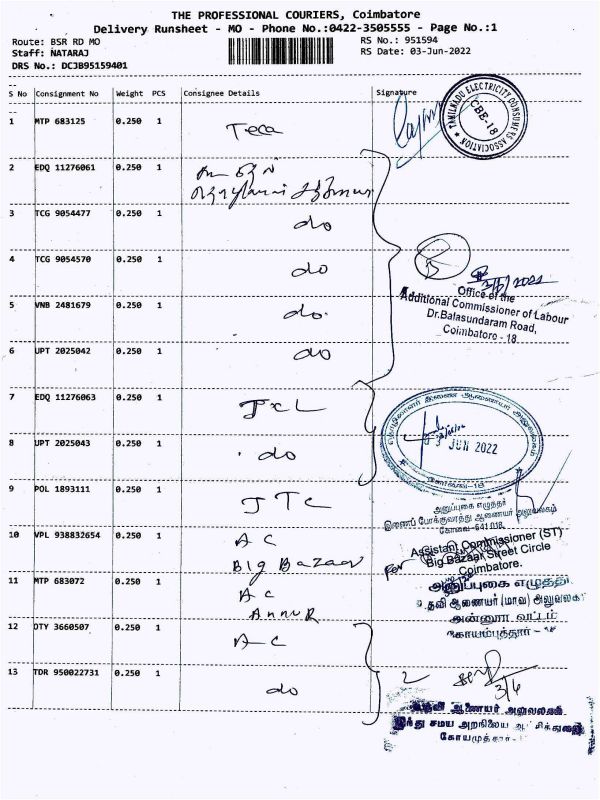 THE PROFESSIONAL COURIERS, Coimbatore
Delivery Runsheet - MO - Phone No.:0422-3505555 - Page No.:1
Route: BSR RD MO
RS No.: 951594
Staff: NATARAJ
RS Date: 03-Jun-2022
DRS No.: DCJB95159401
S No Consignment No Weight PCS Consignee Details Signature
TAMILNADU ELECTRICITY CONSUMERS ASSOCIATION
CBE-18
1 MTP 683125 0.250 1 Teca
2 EDQ 11276061 0.250 1
3 TCG 9054477 0.250 1 do
4 TCG 9054570 0.250 1 do
3/6/2022
Office of the
Additional Commissioner of Labour
Dr.Balasundaram Road,
Coimbatore - 18.
5 VNB 2481679 0.250 1 do
6 UPT 2025042 0.250 1 do
7 EDQ 11276063 0.250 1 JCL
3 JUN 2022
கோவை-18
8 UPT 2025043 0.250 1 do
9 POL 1893111 0.250 1 JTC
அனுப்புகை எழுத்தர்
இணைப் போக்குவரத்து ஆணையர் அலுவலகம்
கோவை-641 018.
10 VPL 938832654 0.250 1 AC
Big Bazaar
Assistant Commissioner (ST)
Big Bazaar Street Circle
Coimbatore.
for
11 MTP 683072 0.250 1 AC
Annur
அனுப்புகை எழுத்தர்
உதவி ஆணையர் (மாவ) அலுவலக
அன்னூர் வட்டம்
கோயம்புத்தூர் - 18
12 DTY 3660507 0.250 1 AC
13 TDR 950022731 0.250 1 do
3/6
உதவி ஆணையர் அலுவலகம்
இந்து சமய அறநிலைய ஆட்சித்துறை
கோயமுத்தூர் -